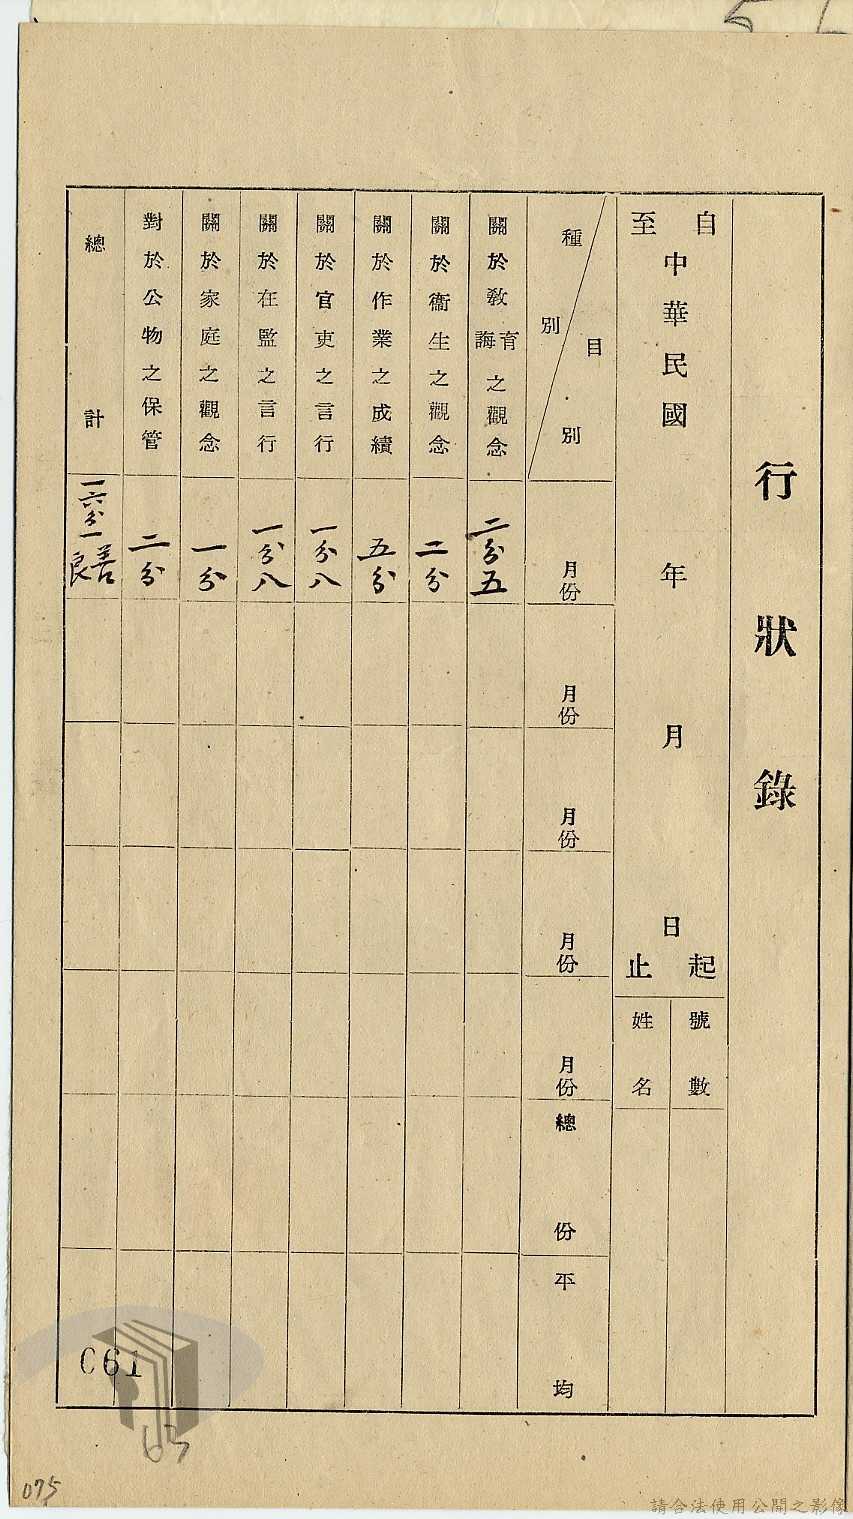 行狀錄
自
至
中華民國 年 月 日
起
止
號數
姓名
種別
目別
月份
月份
月份
月份
月份
總份
平均
關於教育
誨
之觀念
二分五
關於衞生之觀念
二分
關於作業之成績
五分
關於官吏之言行
一分八
關於在監之言行
一分八
關於家庭之觀念
一分
對於公物之保管
二分
總計
一六分一
善良
061
63
075
請合法使用公開之影像